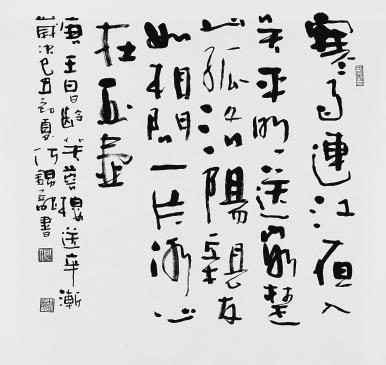 寒雨連江夜入
吳平明送客楚
山孤洛陽親友
如相問一片冰心
在玉壺
唐王昌齡芙蓉樓送辛漸
歲次己丑初夏 錫 書